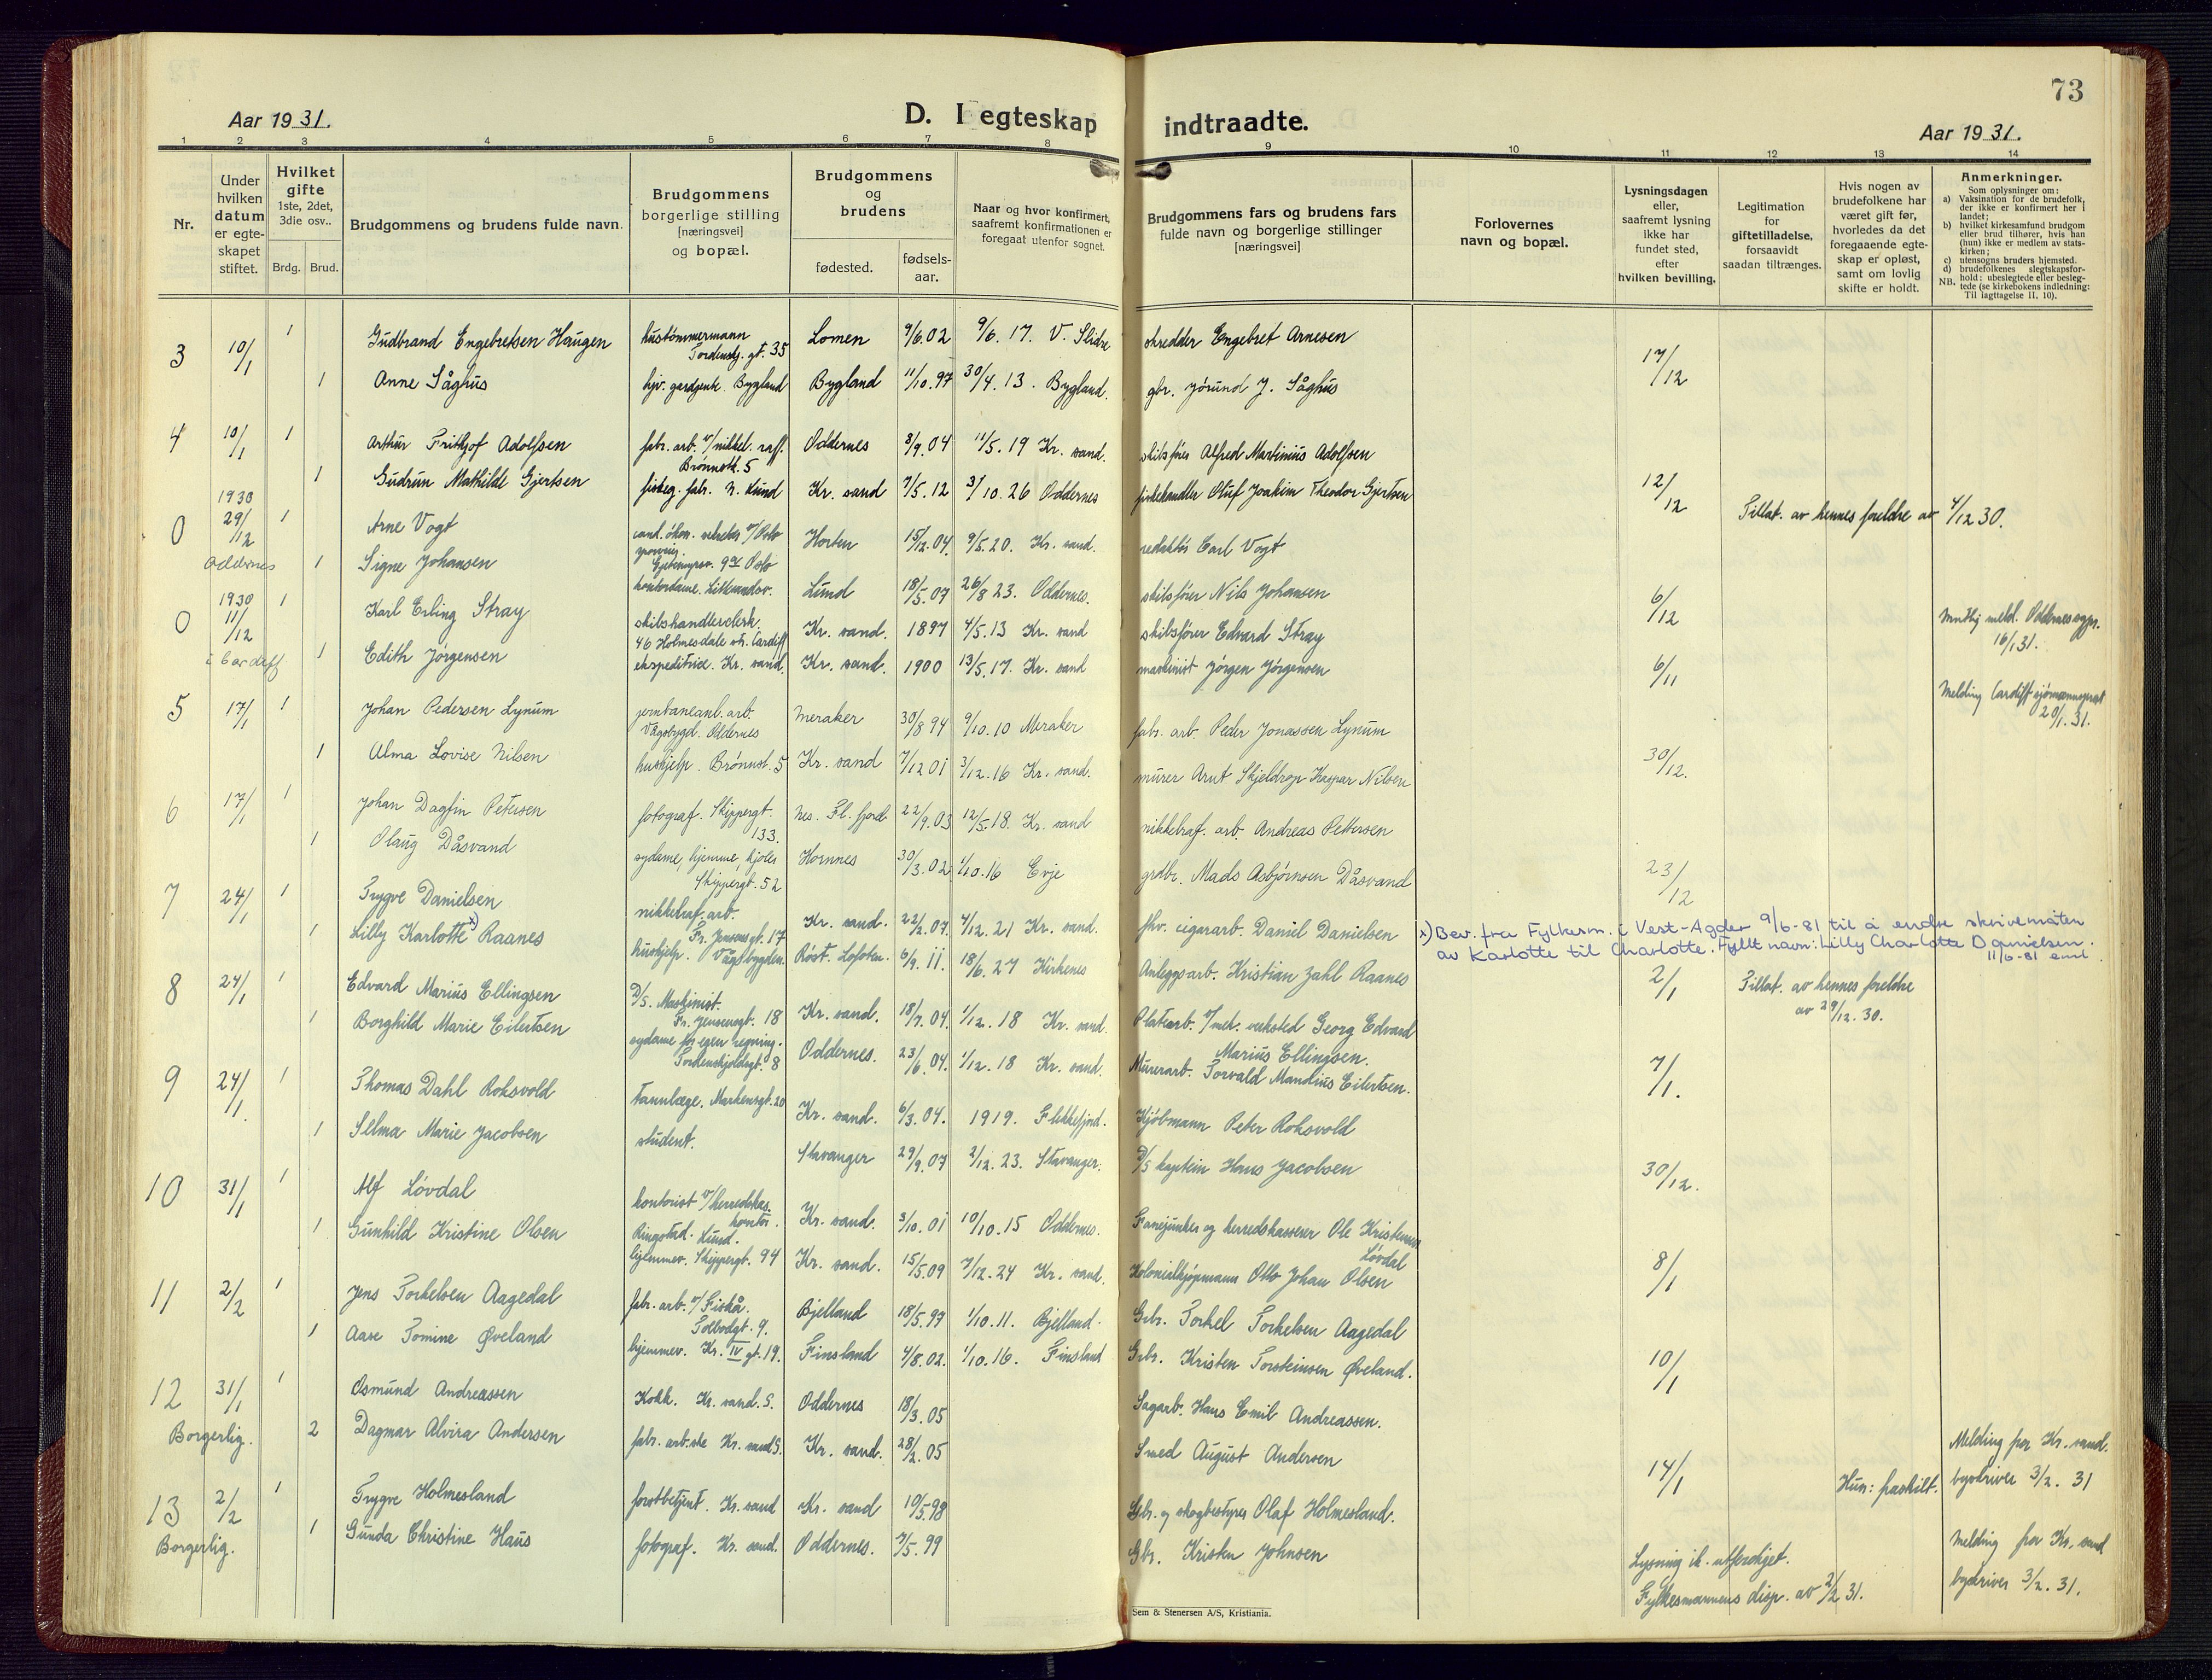 73
Aar 1931.
D. I egteskap indtraadte.
Aar 1931.
1 2 3 4 5 6 7 8 9 10 11 12 13 14
Nr.
Under hvilken datum er egteskapet stiftet.
Hvilket gifte 1ste, 2det, 3die osv..
Brdg. Brud.
Brudgommens og brudens fulde navn.
Brudgommens borgerlige stilling [næringsvei] og bopæl.
Brudgommens og brudens
fødested. fødsels-aar.
Naar og hvor konfirmert, saafremt konfirmationen er foregaat utenfor sognet.
Brudgommens fars og brudens fars fulde navn og borgerlige stillinger [næringsvei]
Forlovernes navn og bopæl.
Lysningsdagen eller, saafremt lysning ikke har fundet sted, efter hvilken bevilling.
Legitimation for giftetilladelse, forsaavidt saadan tiltrænges.
Hvis nogen av brudefolkene har været gift før, hvorledes da det foregaaende egteskap er opløst, samt om lovlig skifte er holdt.
Anmerkninger.
Som oplysninger om:
a) Vaksination for de brudefolk, der ikke er konfirmert her i landet;
b) hvilket kirkesamfund brudgom eller brud tilhører, hvis han (hun) ikke er medlem av statskirken;
c) utensogns bruders hjemsted.
d) brudefolkenes slegtskapsforhold; ubeslegtede eller beslegtede (se kirkebokens indledning:
NB. Til iagttagelse II, 10).
3 10/1 1 Gudbrand Engebretsen Haugen hustømmermann Tordenskj. gt. 35 Lomen 9/6.02 9/6. 17. V. Slidre skredder Engebret Arnesen 17/12
1 Anne Såghus hjv. gardjente. Bygland Bygland 11/10.97 30/4. 13. Bygland. gbr. Jørund J. Såghus
4 10/1 1 Arthur Frithjof Adolfsen fabr. arb. v/nikkel. raff. Brønnstk. 5 Oddernes 3/9.04 11/5. 19 Kr. sand. skibsfører Alfred Martinius Adolfsen 12/12 Tillat. av hennes foreldre av 4/12 30.
1 Gudrun Mathilde Gjertsen Kr. sand 7/5.12 3/10. 26 Oddernes fiskehandler Oluf Joakim Theodor Gjertsen
0 1930 29/12 Oddernes 1 Arne Vogt cand. økon. Oslo Horten 15/12.04 9/5.20. Kr. sand. redaktør Carl Vogt 6/12 Muntlig meld. Oddernes sogpr. 16/1 31.
1 Signe Johansen kontordame. Lund 18/5.07 26/8 23. Oddernes. skibsfører Nils Johansen
0 1930 11/12 i Cardiff 1 Karl Erling Stray skibshandlerclerk. 46 Holmesdale str. Cardiff Kr. sand. 1897 4/5.13 Kr. sand skibsfører Edvard Stray 6/11 Melding Cardiff sjømannsprest 20/1. 31.
1 Edith Jørgensen ekspeditrise. Kr. sand. Kr. sand. 1900 13/5.17. Kr. sand maskinist Jørgen Jørgensen
5 17/1 1 Johan Pedersen Lynum jernbaneanl. arb. Vågsbygd. Oddernes Meraker 30/8 94 9/10.10 Meraker fabr. arb. Peder Jonassen Lynum 30/12.
1 Alma Lovise Nilsen hushjelp. Brønnst. 5 Kr. sand 7/12 01 3/12.16 Kr. sand. murer Arnt Skjeldrop Kaspar Nilsen
6 17/1 1 Johan Dagfin Petersen fotograf. Skippergt. 133. Nes. Fl. fjord 22/9.03 12/5.18. Kr. sand nikkelraf. arb. Andreas Pettersen 23/12
1 Olaug Dåsvand sydame, hjemme, kjoler Skippergt. 52 Hornnes 30/3.02 1/10.16 Evje grdbr. Mads Asbjørnsen Dåsvand
7 24/1 1 Trygve Danielsen nikkelraf. arb. Fr. Jensensgt. 17 Kr. sand. 22/2.07. 4/12. 21 Kr. sand. fhv. cigararb. Daniel Danielsen 2/1 Tillat. av hennes foreldre av 29/12. 30.
x) Bev. fra Fylkesm. i Vest-Agder 9/6-81 til å endre skrivemåten av Karlotte til Charlotte. Fullt navn: Lilly Charlotte Danielsen. 11/6-81
1 Lilly Karlotte x) Raanes hushjelp. Vågsbygden. Røst. Lofoten. 6/9. 11. 18/6. 27 Kirkenes Anleggsarb. Kristian Zahl Raanes
8 24/1 1 Edvard Marius Ellingsen D/S. Maskinist. Fr. Jensensgt. 18 Kr. sand. 18/7.04. 1/12. 18 Kr. sand. Platearb. v/mek. verksted Georg Edvard Marius Ellingsen. 7/1.
1 Borghild Marie Eilertsen sydame for egen regning. Tordenskjoldsgt. 8 Oddernes. 23/6.04. 1/12. 18 Kr. sand. Murerarb. Torvald Mandius Eilertsen.
9 24/1. 1 Thomas Dahl Roksvold tannlæge. Markensgt. 20 Kr. sand. 6/3.04. 1919. Flekkefjord. Kjøbmann Peter Roksvold 30/12.
1 Selma Marie Jacobsen student. Stavanger 29/9.07 2/12. 23. Stavanger. D/S kaptein Hans Jacobsen
10 31/1 1 Alf Løvdal kontorist v/herredskas. kontor. Ringstad. Lund. Kr. sand. 3/10.01 10/10.15 Oddernes. Fanejunker og herredskasserer Ole Kristensen Løvdal 8/1
1 Gunhild Kristine Olsen hjemmev. Skippergt. 94 Kr. sand. 15/5.09 7/12.24 Kr. sand. Kolonialkjøpmann Otto Johan Olsen
11 2/2 1 Jens Torkelsen Aagedal fabr. arb. v/Fiskå. Tolbodgt. 9. Bjelland 18/5.97 1/10.11. Bjelland. Grbr. Torkel Torkelsen Aagedal 10/1
1 Aase Tomine Øveland hjemmev. Kr. IV gt. 19. Finsland 4/8.02. 1/10.16. Finsland Grbr. Kristen Torsteinsen Øveland.
12 31/1 1 Osmund Andreassen Kokk. Kr. sand. S. Oddernes 18/3.05 Sagarb. Hans Emil Andreassen. 14/1 Hun: fraskilt. Melding fra Kr. sand. byskriver 3/2. 31
Borgerlig. 2 Dagmar Alvira Andersen fabr. arb.ske Kr. sand S. Kr. sand. 28/2.05 Smed August Andersen
13 2/2 1 Trygve Holmesland forstbetjent. Kr. sand Kr. sand 10/5.98 Gbr. og skogbestyrer Olaf Holmesland. Lysning ik. utferdiget. Fylkesmannens disp. av 2/2 31. Melding fra Kr. sand byskriver 3/2. 31.
Borgerlig. 1 Gunda Christine Haus fotograf. Kr. sand. Oddernes. 7/5.99 Gbr. Kristen Johnsen
Sem & Stenersen A/S, Kristiania.